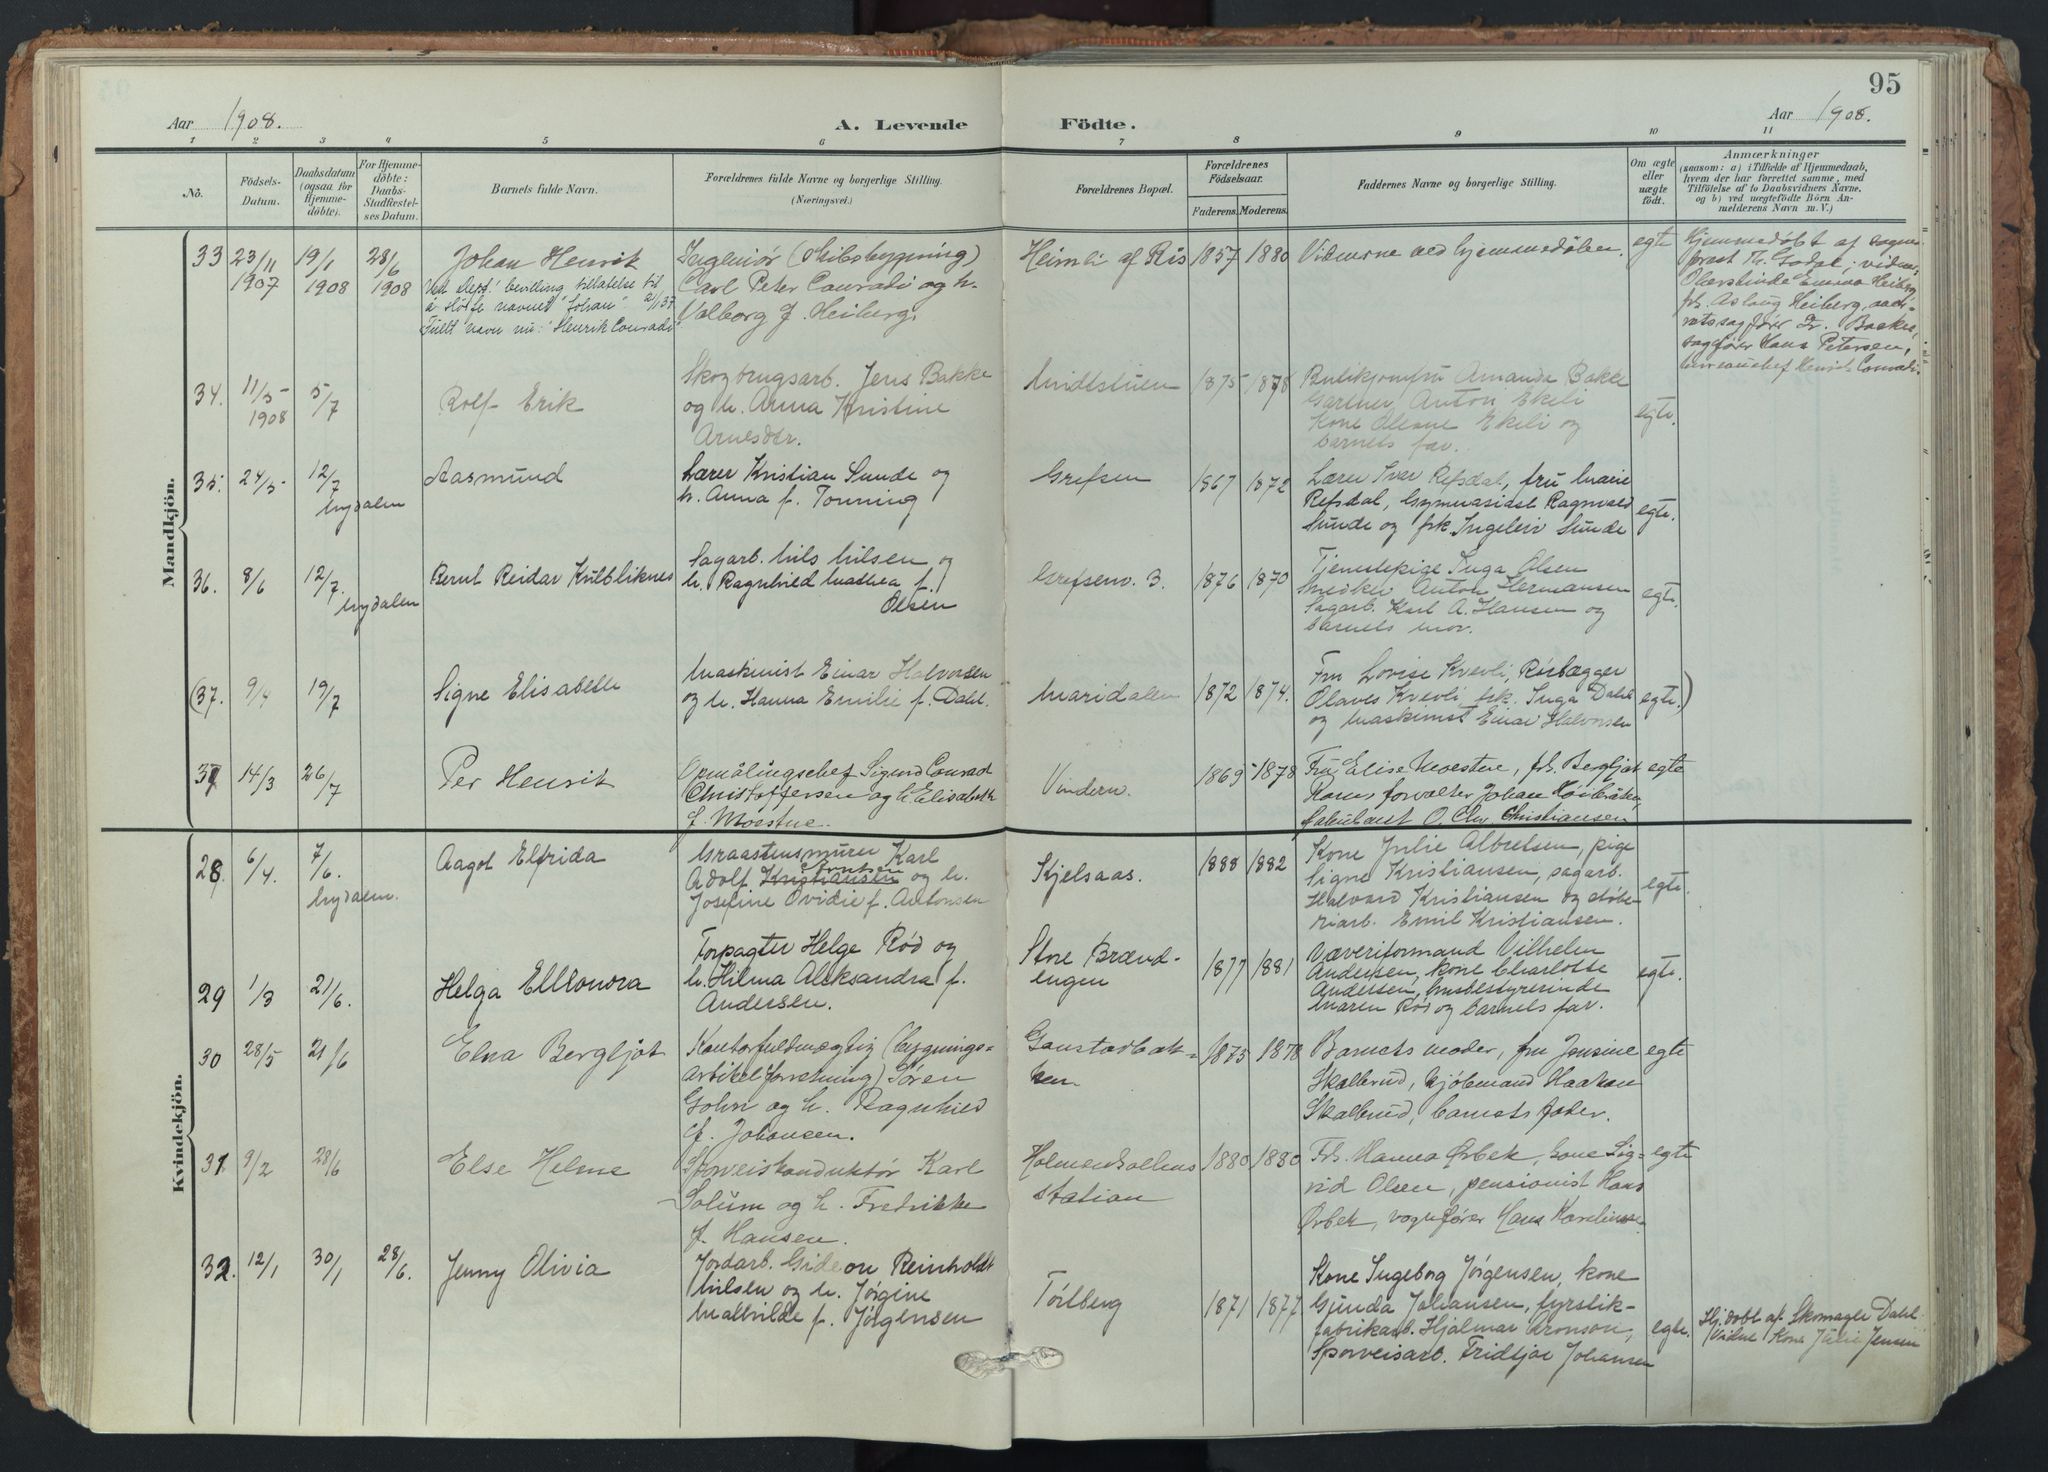 95
Aar 1908. A. Levende Födte. Aar 1908.
1 2 3 4 5 6 7 8 9 10 11
Nö.
Födsels-
Datum.
Daabsdatum
(ogsaa for
Hjemme-
döbte).
For Hjemme-
döbte:
Daabs-
Stadfæstel-
ses Datum.
Barnets fulde Navn.
Forældrenes fulde Navne og borgerlige Stilling.
(Næringsvei.)
Forældrenes Bopæl.
Forældrenes
Födselsaar.
Faderens. Moderens.
Faddernes Navne og borgerlige Stilling.
Om ægte
eller
uægte
födt.
Anmærkninger
(saasom: a) i Tilfælde af Hjemmedaab,
hvem der har forrettet samme, med
Tilföielse af to Daabsvidners Navne.
og b) ved uægtefödte Börn An-
melderens Navn m. V.)
Mandkjön.
33 23/11 1907
19/1 1908
28/6 1908
Johan Henrik
Ved Dept' bevilling tillatelse til
å sløife navnet "Johan" 2/1 37
Fullt navn nu: "Henrik Conradi"
Ingeniør (skibsbygning)
Carl Peter Conradi og h.
Valborg f. Heiberg.
Heimli af Ris
1857 1880
Vidnerne ved hjemmedåben.
egte
Hjemmedøbt af sogne-
prest Th. Godal; vidner:
Oberstinde Emma Heiberg,
frk. Aslaug Heiberg,
sagfører Fr. Backer,
sagfører Hans Petersen,
bureauchef Henrik Conradi.
34. 11/5 1908
5/7
Rolf Erik
Skogbrugsarb. Jens Bakke
og h. Anna Kristine
Arnesdtr.
Midtstuen
1875 1878
Butikjomfru Amanda Bakke
Gartner Anton Ekeli
Kone Olesne Ekeli og
barnets far.
egte.
35. 24/5
12/7
Nydalen
Aasmund
Lærer Kristian Sunde og
h. Anna f. Tonning
Grefsen
1867 1872
Lærer Iver Refsdal, fru Marie
Refsdal, Gymnasiast Ragnvald
Sunde og frk. Ingeleiv Sunde
egte.
36. 8/6
12/7.
Nydalen
Bernt Reidar Kulbliknes
Sagarb. Nils Nilsen og
h. Ragnhild Mathea f.
Olsen
Grefsenv. 3.
1876 1870
Tjenestepige Inga Olsen
Snedker Anton Hermansen
Sagarb. Karl A. Hansen og
barnets mor.
egte.
(37. 9/4
19/7
Signe Elisabeth
Maskinist Einar Halvorsen
og h. Hanna Emilie f. Dahl.
Maridalen
1872 1874.
Fru Lovise Kvevli, Rørlægger
Olaves Kvevli, frk. Inga Dahl
og maskinist Einar Halvorsen
egte.)
37 14/3
26/7
Per Henrik
Opmålingschef Sigurd Conrad
Christoffersen og h. Elisabeth
f. Moestue.
Vindern.
1869 1878
Fru Elise Moestue, frk. Bergljot
forvalter Johan Høibråten,
fabrikant O. Chr. Christiansen
egte
Kvindekjön.
28. 6/4.
7/6.
Nydalen.
Aagot Elfrida
Graastensmurer Karl
Arntsen
Adolf Kristiansen og h.
Josefine Ovidie f. Antonsen
Kjelsaas.
1888 1882
Kone Julie Albretsen, pige
Signe Kristiansen, sagarb.
Halvard Kristiansen og støbe-
riarb. Emil Kristiansen.
egte.
29 1/3
21/6.
Helga Ellonora
Forpagter Helge Rød og
h. Hilma Aleksandra f.
Andersen.
Store Brænd-
engen
1877 1881
Væveriformand Vilhelm
Andersen, kone Charlotte
Andersen, husbestyrerinde
Maren Rød og barnets far.
egte.
30 28/5
21/6
Elna Bergljot
Kontorfuldmægtig (bygnings-
artikelforretning) Søren
Gohn og h. Ragnhild
f. Johansen.
Gaustadbak-
ken
1875 1878
Barnets moder, fru Jensine
Skalbrud, kjøbmand Haakon
Skalbrud, barnets fader.
egte
31 9/2
28/6
Else Helene
Sporveiskonduktør Karl
Solum og h. Fredrikke
f. Hansen.
Holmenkollens
station
1880 1880
Frk. Hanna Ørbek, kone Sig-
vid Olsen, pensionist Hans
Ørbek, vognfører Hans Karelius
egte
32. 12/1
30/1
28/6.
Jenny Olivia
Jordarb. Gideon Reinholdt
Nilsen og h. Jørgine
Mathilde f. Jørgensen
Tørtberg
1871 1877
Kone Ingeborg Jørgensen, kone
Gunda Johansen, fyrstik-
fabrikarb. Hjalmar Aronson,
Sporveisarb. Fridtjof Johansen
egte.
Hj. døbt af Skomager Dahl
Vidne Kone Julie Jensen